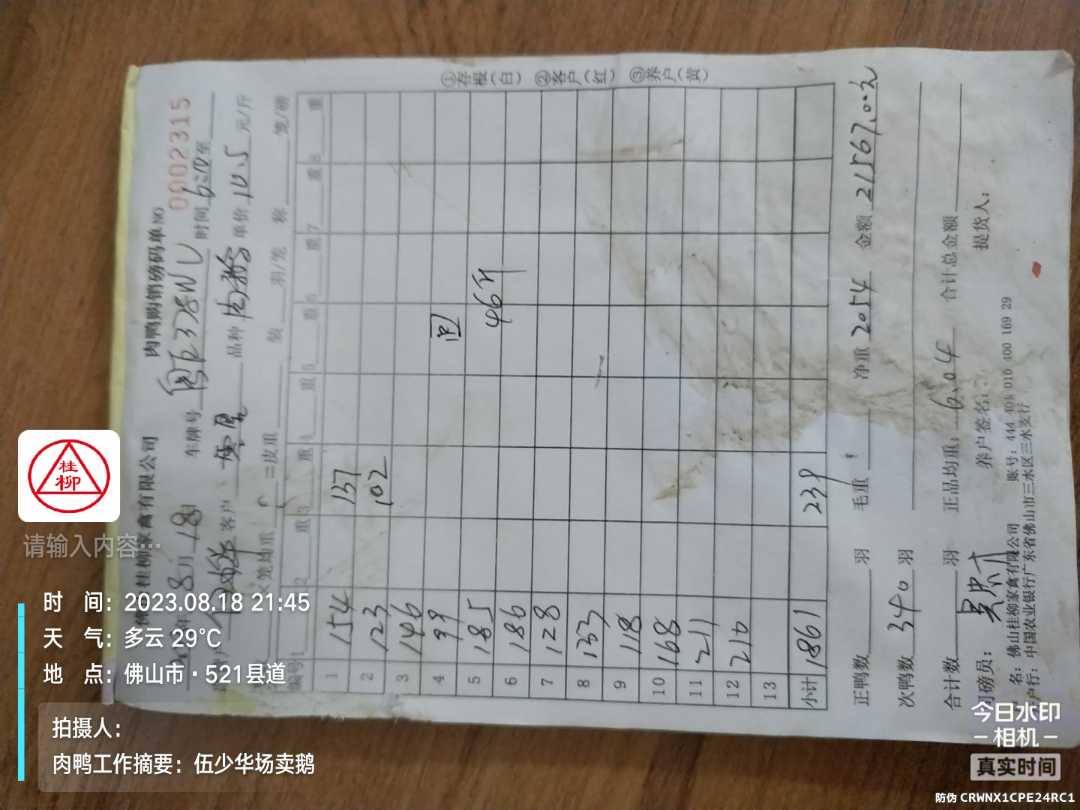 佛山桂柳家禽有限公司 肉鸭购销磅码单 NO 0002315
8月18日 车牌号 328NL 时间 6:10 至
客户 品种 肉鹅 单价 10.5 元/斤
笼均重 三皮重 装 羽/笼 称 笼/磅
编号 1 2 重 3 重 4 重 5 重 6 重 7 重 8 重
1 154 137
2 123 102
3 146
4 99 回
5 185
6 186 46斤
7 128
8 133
9 118
10 168
11 211
12 210
13
小计 1861 239
正鸭数 羽 毛重 净重 2054 金额 21567.00元
次鸭数 340 羽
合计数 羽 正品均重: 6.04 合计总金额
司磅员: 养户签名: 提货人:
名: 佛山桂柳家禽有限公司 账号: 444 404 010 400 169 29
户行: 中国农业银行广东省佛山市三水区三水支行
①存根(白) ②客户(红) ③养户(黄)
桂柳
请输入内容...
时 间: 2023.08.18 21:45
天 气: 多云 29℃
地 点: 佛山市·521县道
拍摄人:
肉鸭工作摘要: 伍少华场卖鹅
今日水印
-相机-
真实时间
防伪 CRWNX1CPE24RC1